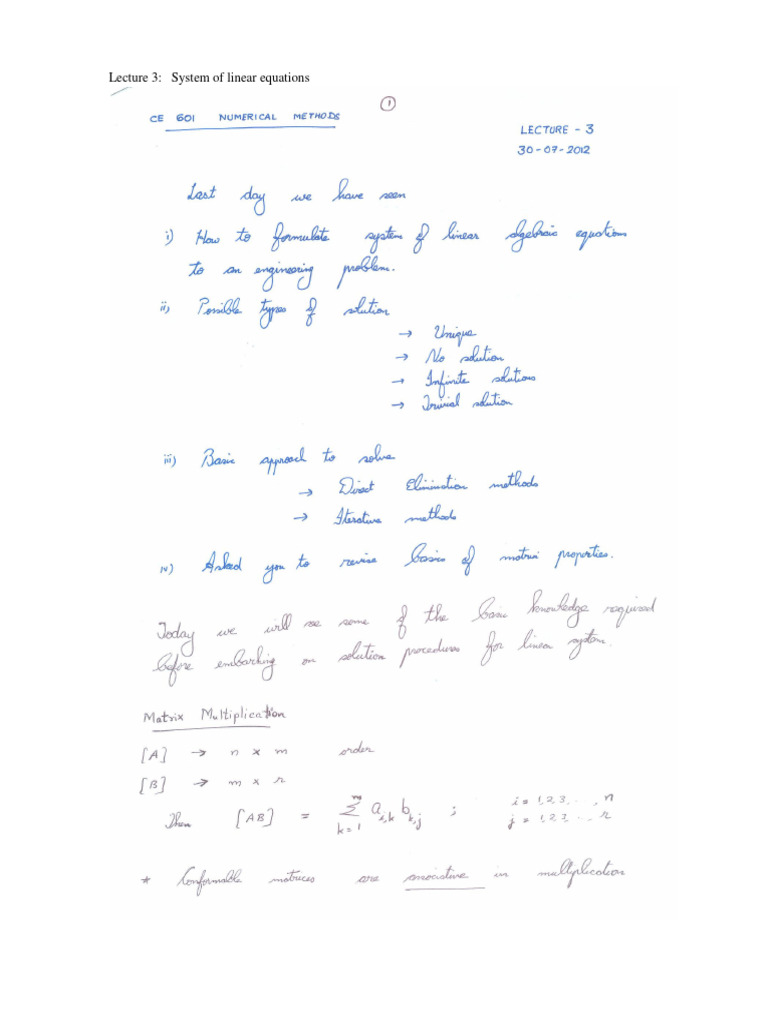 Lecture 3: System of linear equations
1
CE 601 NUMERICAL METHODS
LECTURE - 3
30-07-2012
Last day we have seen
i) How to formulate system of linear algebraic equations
to an engineering problem.
ii) Possible types of solution
→ Unique
→ No solution
→ Infinite solutions
→ Trivial solution
iii) Basic approach to solve
→ Direct Elimination methods
→ Iterative methods
iv) Asked you to revise basics of matrix properties.
Today we will see some of the basic knowledge required
before embarking on solution procedures for linear system.
Matrix Multiplication
[A] → n × m order
[B] → m × r
Then [AB] = ∑_{k=1}^{m} a_{i,k} b_{k,j} ; i = 1,2,3,..., n
j = 1,2,3,..., r
* Conformable matrices are associative in multiplication